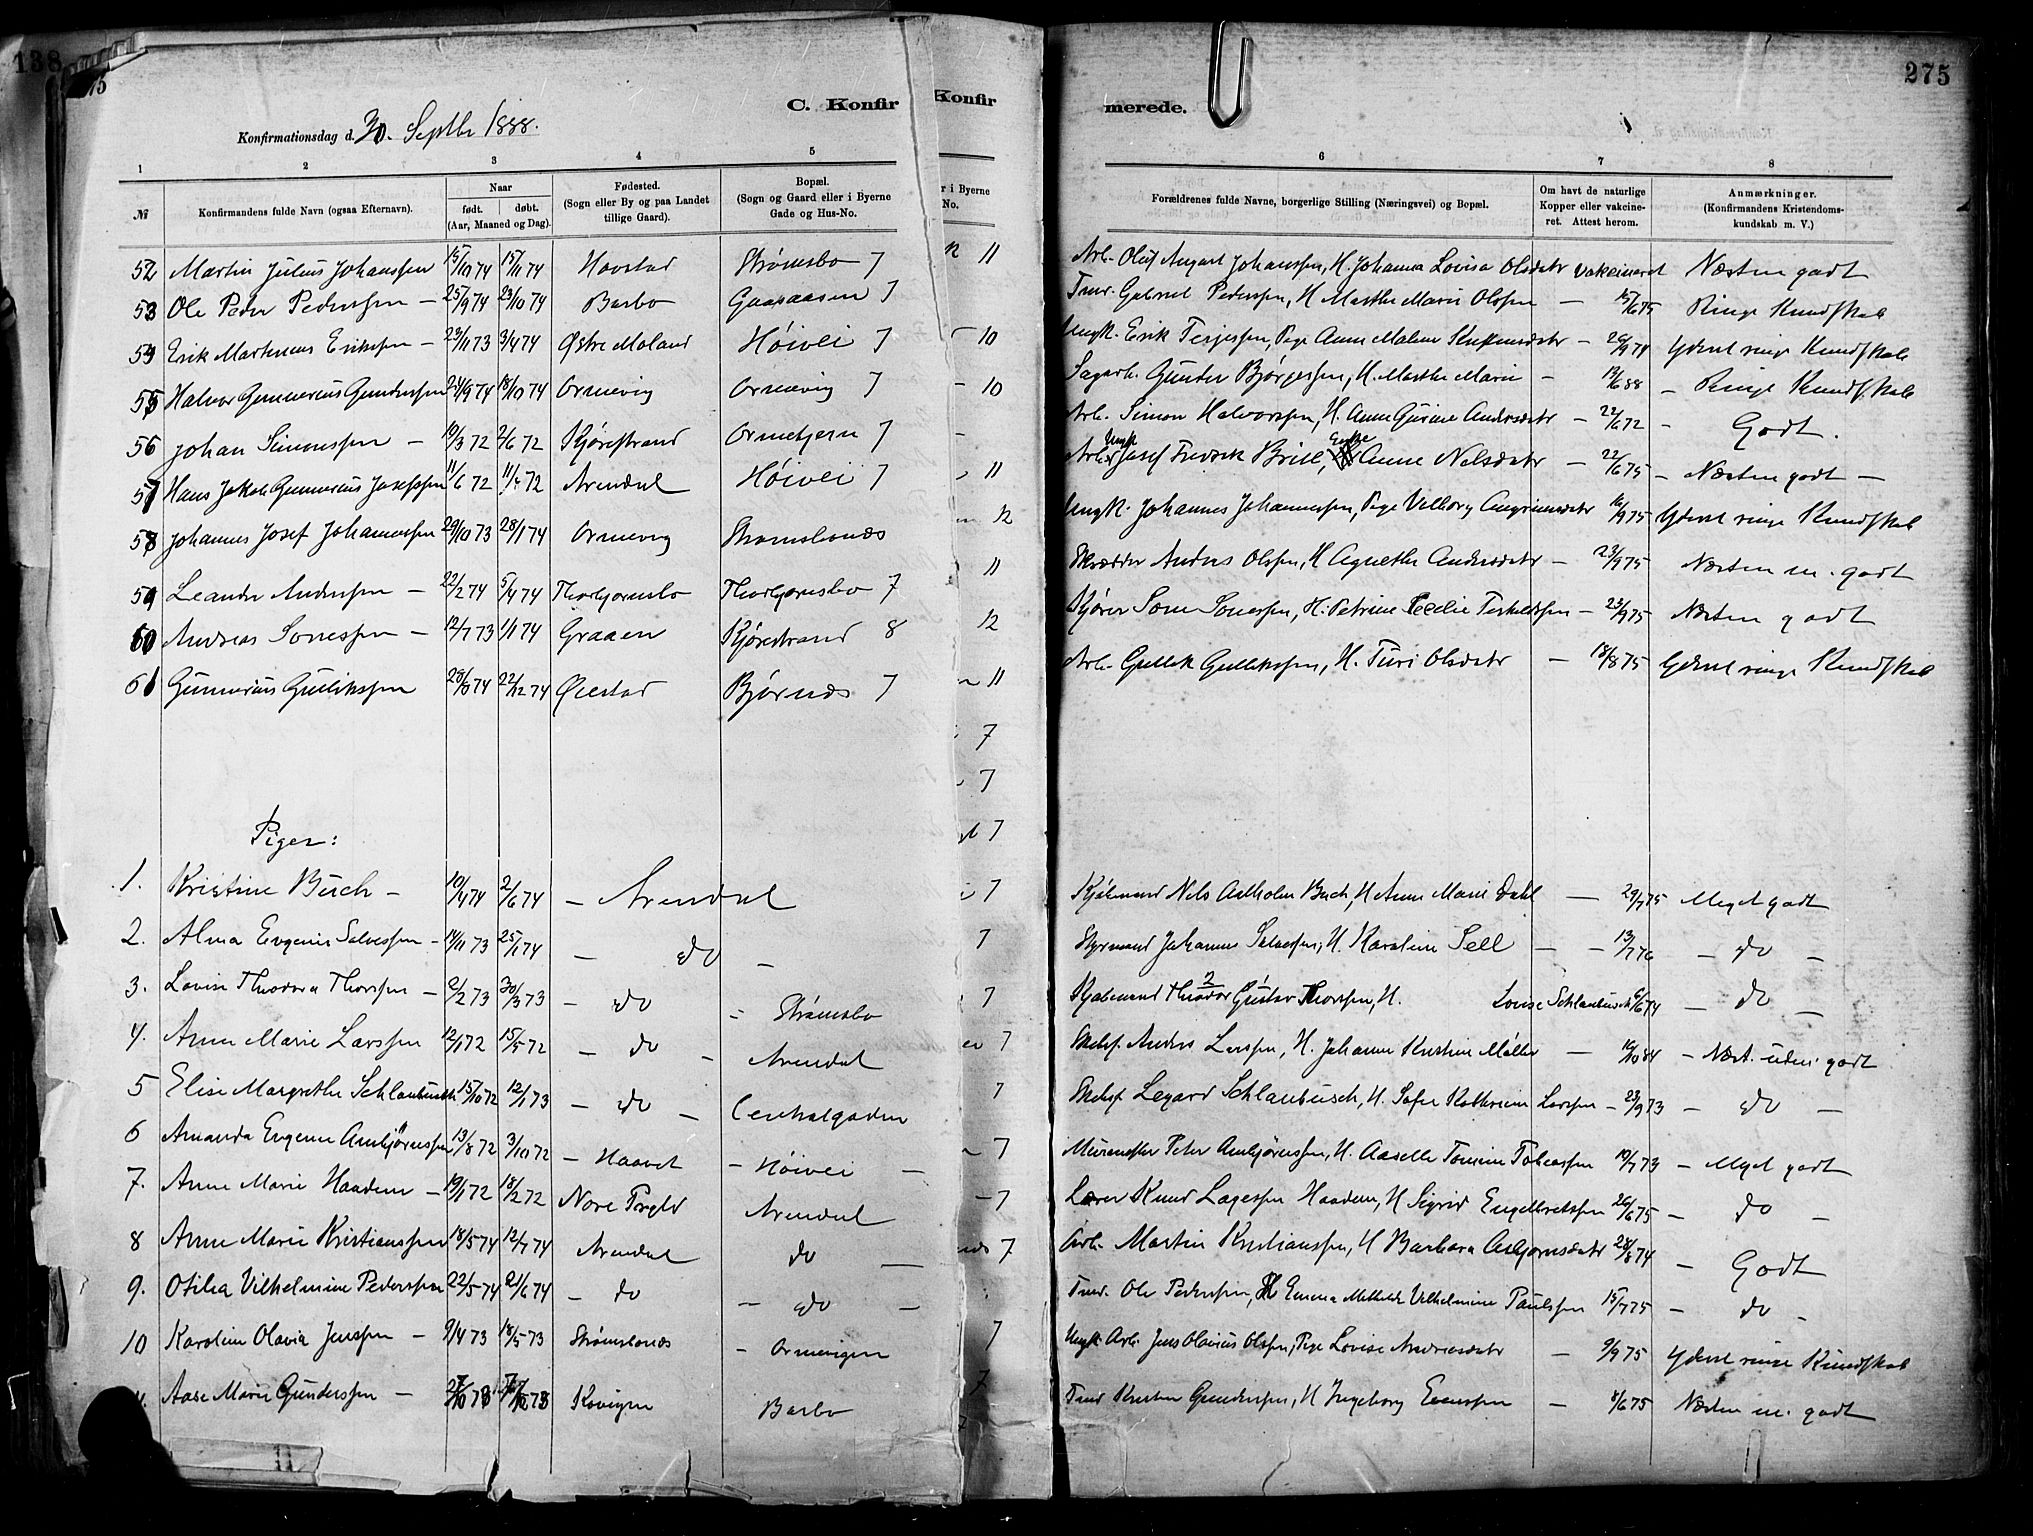 138
275
C. Konfir
Konfir
merede.
Konfirmationsdag d. 30. Septbr 1888.
1 2 3 4 5
6 7 8
№ Konfirmandens fulde Navn (ogsaa Efternavn). Naar født. døbt. (Aar, Maaned og Dag). Fødested. (Sogn eller By og paa Landet tillige Gaard). Bopæl. (Sogn og Gaard eller i Byerne Gade og Hus-No.
r i Byerne
No.
Forældrenes fulde Navne, borgerlige Stilling (Næringsvei) og Bopæl. Om havt de naturlige Kopper eller vakcineret. Attest herom. Anmærkninger. (Konfirmandens Kristendomskundskab m. V.)
52 Martin Julius Johanssen 15/10 74 15/11 74 Havstad Strømsbo 7
Arb. Oluf August Johanssen, H. Johanna Lovisa Olsdatr vakcineret Næsten godt
53 Ole Peder Pederssen — 25/9 74 23/10 74 Barbo Gaasaasen 7
Tmd. Gabriel Pederssen, H Marthe Marie Olssen — 15/6 75 Ringe Kundskab
54 Erik Martinius Erikssen — 23/11 73 3/4 74 Østre Moland Høivei 7
Ungk. Erik Terjessen, Pige Anne Malene — 26/9 74 Yderst ringe Kundskab
55 Halvor Gunnerius Gunderssen 24/9 74 18/10 74 Ormevig Ormevig 7
Sagarb. Gunder Bjørgessen, H. Marthe Marie — 19/6 88 — Ringe Kundskab
56 Johan Simonssen — 19/3 72 2/6 72 Kjørestrand Ormetjern 7
Arb. Simon Halvorssen, H. Anne Gurine Andersdatr — 22/6 72 — Godt.
57 Hans Jakob Gunnerius Josefssen 11/6 72 Arendal Høivei 7
Ungk Arb. Josef Fredrik Brill, Enke Anne Nelsdatr — 22/6 75 — Næsten godt —
58 Johannes Josef Johannessen 29/10 73 28/1 74 Ormevig Strømsbonæs
Ungk. Johannes Johannessen, Pige Velborg 16/9 75 Yderst ringe Kundskab
59 Leander Anderssen — 22/2 74 5/4 74 Thorbjørnsbo Thorbjørnsbo 7
Skrædder Anders Olssen, H Agnethe Andersdatr — 23/9 75 Næsten m. godt
60 Andreas Sørenssen — 12/7 73 1/1 74 Graaen Kjørestrand 8
Kjører Søren Sørenssen, H. Petrine Cecelie Terkeldssen — 23/9 75 Næsten godt
61 Gunnerius Gullikssen 28/8 74 22/12 74 Øiestad Bjørnæs 7
Arb. Gullik Gullikssen, H. Turi Olsdatr — 18/8 75 Yderst ringe Kundskab
Piger:
1. Kristine Buch — 10/4 74 2/6 74 — Arendal
Kjøbmand Nels Aalholm Buch, H Anne Marie Dahl — 29/7 75 Meget godt
2. Alma Evgenie Salvessen — 14/11 73 25/1 74 — do —
Styrmand Johannes Salvessen, H. Karoline Sell — — 13/7 76 — do —
3. Lovise Theodora Thorssen — 2/2 73 30/3 73 — do — Strømsbo
Kjøbmand Theodor Gustav Thorssen, H. Lovise Schlanbusch 6/6 74 — do —
4. Anne Marie Larssen 12/1 72 15/5 72 — do — Arendal
Skibsf. Anders Larssen, H. Johanne Kristine Møller — 16/10 84 — Næst. uden. godt
5 Elise Margrethe Schlanbusch 15/10 72 12/1 73 — do — Centralgaden
Skibsf. Legard Schlanbusch, H. Sofie Kathrine Larssen — 23/9 73 — do —
6 Amanda Evgenie Ambjørnssen 13/8 72 3/10 72 — Haavet — Høivei —
Murmester Peter Ambjørnssen, H. Aaselle Tomine Tobiassen 19/7 73 — Meget godt
7. Anne Marie Haadem — 19/1 72 18/2 72 Nore Prgld Arendal
Lærer Knud Lagessen Haadem, H Sigrid Engelbretssen 26/6 75 — do —
8 Anne Marie Kristianssen 18/5 74 12/7 74 Arendal do —
Arb. Martin Kristianssen, H Barbara Asbjørnsdatr 28/8 74 — Godt
9. Otilia Vilhelmine Pederssen 22/5 74 21/6 74 — do — do —
Tmd. Ole Pederssen, H Emma Mathilde Vilhelmine Paulssen 15/7 75 — do —
10 Karoline Olava Jenssen — 9/4 73 18/5 73 Strømsbonæs — Ormevigen
Ungk. Arb. Jens Olavius Olssen, Pige Lovise Andreasdatr — 9/9 75 Yderst ringe Kundskab
Aase Marie Gunderssen — Kovigen Barbo
Tmd Kristen Gunderssen, H Ingeborg Evenssen — 8/6 75 Næsten m. godt